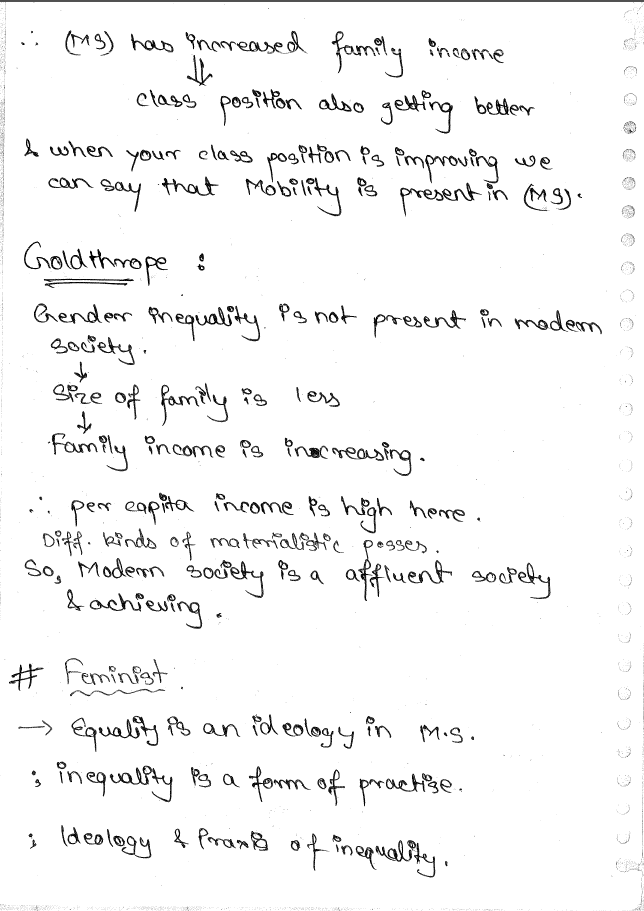 ∴ (MS) has increased family income
⇓
class position also getting better
& when your class position is improving we
can say that Mobility is present in (MS).
Goldthrope :
Gender inequality is not present in modern
society.
↓
Size of family is less
↓
Family income is increasing.
∴ per capita income is high here.
Diff. kinds of materialistic posses.
So, Modern society is a affluent society
& achieving.
# Feminist :
→ Equality is an ideology in M.S.
; inequality is a form of practise.
; Ideology & Praxis of inequality.